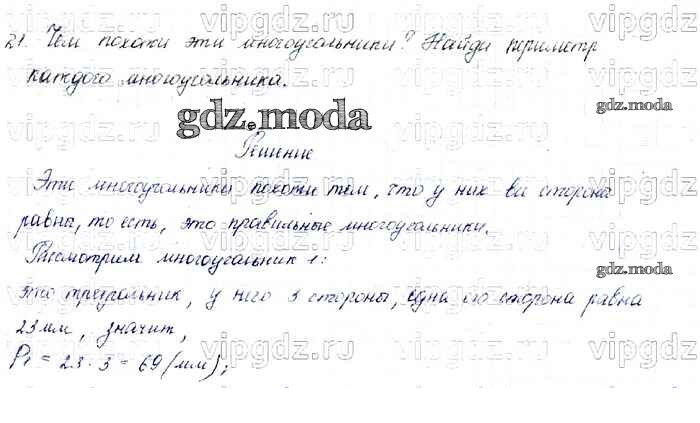 21. Чем похожи эти многоугольники? Найди периметр
каждого многоугольника.
gdz.moda
gdz.moda
Решение
Эти многоугольники похожи тем, что у них все стороны
равны, то есть, это правильные многоугольники.
Рассмотрим многоугольник 1:
gdz.moda
это треугольник, у него 3 стороны, одна его сторона равна
23 мм, значит,
P₁ = 23 · 3 = 69 (мм);
vipgdz.ru